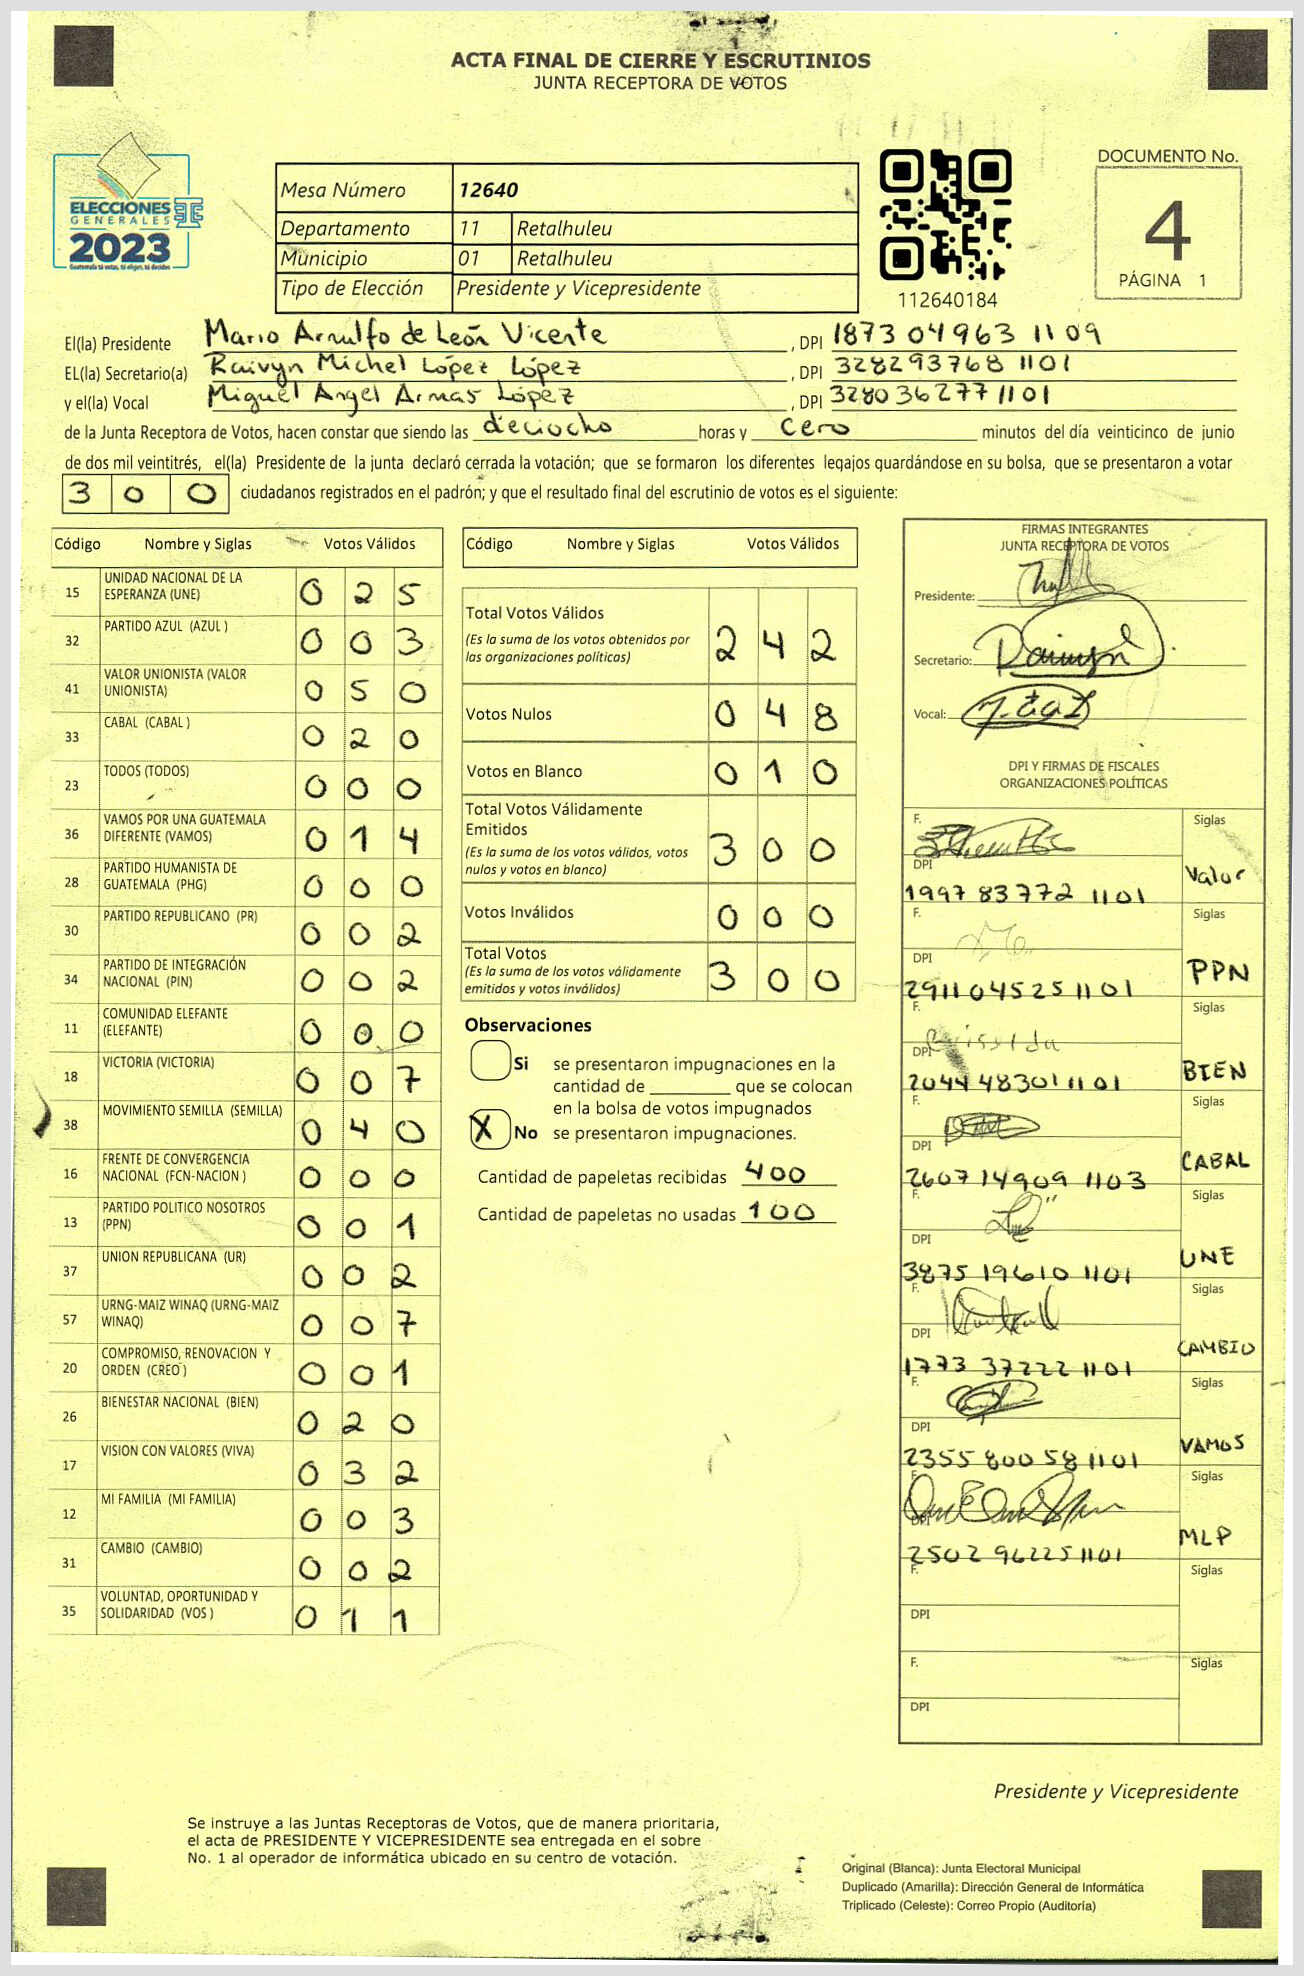 ACTA FINAL DE CIERRE Y ESCRUTINIOS
JUNTA RECEPTORA DE VOTOS
ELECCIONES
GENERALES
2023
Guatemala tú votas, tú eliges, tú decides
Mesa Número 12640
Departamento 11 Retalhuleu
Municipio 01 Retalhuleu
Tipo de Elección Presidente y Vicepresidente
112640184
DOCUMENTO No.
4
PÁGINA 1
El(la) Presidente Mario Arnulfo de León Vicente, DPI 1873 04963 1109
EL(la) Secretario(a) Raivyn Michel López López, DPI 328293768 1101
y el(la) Vocal Miguel Angel Armas López, DPI 3280362771101
de la Junta Receptora de Votos, hacen constar que siendo las dieciocho horas y cero minutos del día veinticinco de junio
de dos mil veintitrés, el(la) Presidente de la junta declaró cerrada la votación; que se formaron los diferentes legajos guardándose en su bolsa, que se presentaron a votar
3 0 0 ciudadanos registrados en el padrón; y que el resultado final del escrutinio de votos es el siguiente:
Código Nombre y Siglas Votos Válidos
15 UNIDAD NACIONAL DE LA ESPERANZA (UNE) 0 2 5
32 PARTIDO AZUL (AZUL ) 0 0 3
41 VALOR UNIONISTA (VALOR UNIONISTA) 0 5 0
33 CABAL (CABAL ) 0 2 0
23 TODOS (TODOS) 0 0 0
36 VAMOS POR UNA GUATEMALA DIFERENTE (VAMOS) 0 1 4
28 PARTIDO HUMANISTA DE GUATEMALA (PHG) 0 0 0
30 PARTIDO REPUBLICANO (PR) 0 0 2
34 PARTIDO DE INTEGRACIÓN NACIONAL (PIN) 0 0 2
11 COMUNIDAD ELEFANTE (ELEFANTE) 0 0 0
18 VICTORIA (VICTORIA) 0 0 7
38 MOVIMIENTO SEMILLA (SEMILLA) 0 4 0
16 FRENTE DE CONVERGENCIA NACIONAL (FCN-NACION ) 0 0 0
13 PARTIDO POLITICO NOSOTROS (PPN) 0 0 1
37 UNION REPUBLICANA (UR) 0 0 2
57 URNG-MAIZ WINAQ (URNG-MAIZ WINAQ) 0 0 7
20 COMPROMISO, RENOVACION Y ORDEN (CREO ) 0 0 1
26 BIENESTAR NACIONAL (BIEN) 0 2 0
17 VISION CON VALORES (VIVA) 0 3 2
12 MI FAMILIA (MI FAMILIA) 0 0 3
31 CAMBIO (CAMBIO) 0 0 2
35 VOLUNTAD, OPORTUNIDAD Y SOLIDARIDAD (VOS ) 0 1 1
Código Nombre y Siglas Votos Válidos
Total Votos Válidos 2 4 2
(Es la suma de los votos obtenidos por
las organizaciones políticas)
Votos Nulos 0 4 8
Votos en Blanco 0 1 0
Total Votos Válidamente
Emitidos 3 0 0
(Es la suma de los votos válidos, votos
nulos y votos en blanco)
Votos Inválidos 0 0 0
Total Votos 3 0 0
(Es la suma de los votos válidamente
emitidos y votos inválidos)
Observaciones
Si se presentaron impugnaciones en la
cantidad de ________ que se colocan
en la bolsa de votos impugnados
X No se presentaron impugnaciones.
Cantidad de papeletas recibidas 400
Cantidad de papeletas no usadas 100
FIRMAS INTEGRANTES
JUNTA RECEPTORA DE VOTOS
Presidente:
Secretario:
Vocal:
DPI Y FIRMAS DE FISCALES
ORGANIZACIONES POLÍTICAS
F. Siglas
DPI 1997 83772 1101 Valor
F. Siglas
DPI 2911045251101 PPN
F. Siglas
DPI 2044483011101 BIEN
F. Siglas
DPI 2607 14909 1103 CABAL
F. Siglas
DPI 3875 19610 1101 UNE
F. Siglas
DPI 1773 37222 1101 CAMBIO
F. Siglas
DPI 2355 80058 1101 VAMOS
F. Siglas
DPI 2502 96225 1101 MLP
F. Siglas
DPI
F. Siglas
DPI
Presidente y Vicepresidente
Se instruye a las Juntas Receptoras de Votos, que de manera prioritaria,
el acta de PRESIDENTE Y VICEPRESIDENTE sea entregada en el sobre
No. 1 al operador de informática ubicado en su centro de votación.
Original (Blanca): Junta Electoral Municipal
Duplicado (Amarilla): Dirección General de Informática
Triplicado (Celeste): Correo Propio (Auditoría)